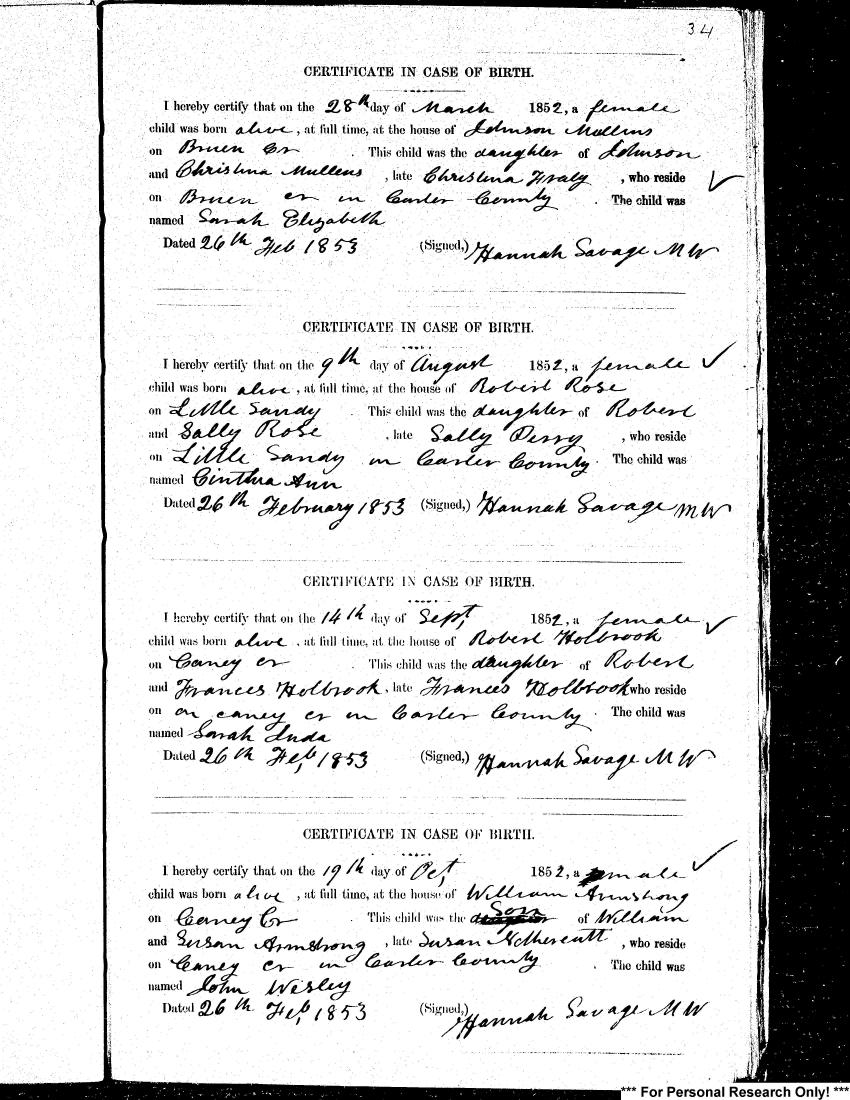 34
CERTIFICATE IN CASE OF BIRTH.
I hereby certify that on the 28th day of March 1852, a female
child was born alive, at full time, at the house of Johnson Mullins
on Bruen Cr . This child was the daughter of Johnson
and Christina Mullens , late Christina Fraly , who reside
on Bruen cr in Carter County . The child was
named Sarah Elizabeth
Dated 26th Feb 1853 (Signed,) Hannah Savage MW
CERTIFICATE IN CASE OF BIRTH.
I hereby certify that on the 9th day of August 1852, a female
child was born alive, at full time, at the house of Robert Rose
on Little Sandy . This child was the daughter of Robert
and Sally Rose , late Sally Perry , who reside
on Little Sandy in Carter County. The child was
named Cinthia Ann
Dated 26th February 1853 (Signed,) Hannah Savage MW
CERTIFICATE IN CASE OF BIRTH.
I hereby certify that on the 14th day of Sept, 1852, a female
child was born alive, at full time, at the house of Robert Holbrook
on Caney cr . This child was the daughter of Robert
and Frances Holbrook, late Frances Holbrook who reside
on on caney cr in Carter County . The child was
named Sarah Inda
Dated 26th Feb, 1853 (Signed,) Hannah Savage MW
CERTIFICATE IN CASE OF BIRTH.
I hereby certify that on the 19th day of Oct, 1852, a male
child was born alive, at full time, at the house of William Armstrong
on Caney Cr . This child was the Son of William
and Susan Armstrong , late Susan Nethercutt , who reside
on Caney cr in Carter County . The child was
named John Wesley
Dated 26th Feb, 1853 (Signed,) Hannah Savage MW
*** For Personal Research Only! ***